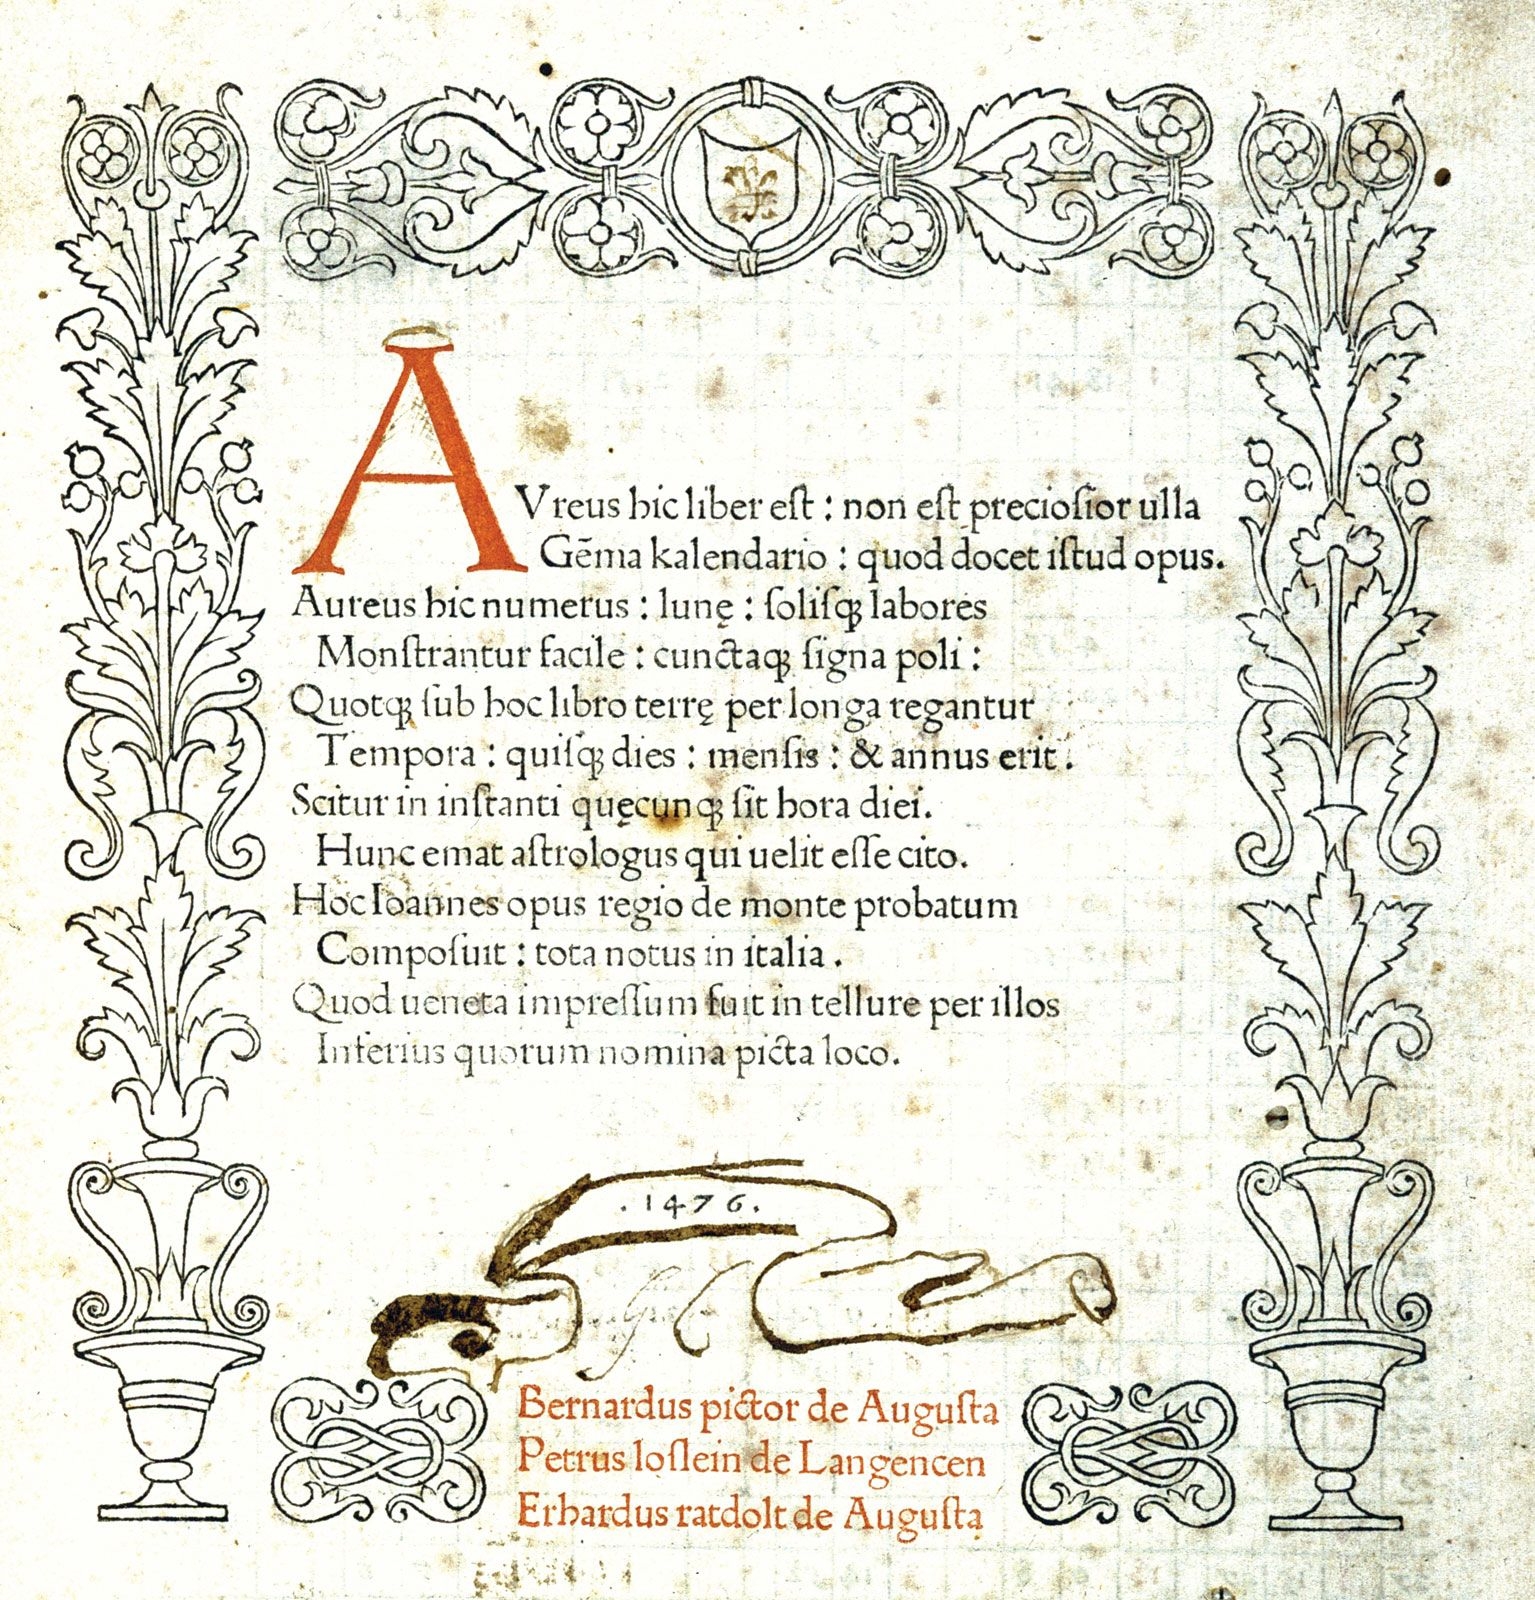 AVreus hic liber eſt : non eſt precioſior ulla
Gēma kalendario : quod docet iſtud opus.
Aureus hic numerus : lunę : ſoliſꝙ labores
Monſtrantur facile : cunctaꝙ ſigna poli :
Quotꝙ ſub hoc libro terrę per longa regantur
Tempora : quiſꝙ dies : menſis : & annus erit .
Scitur in inſtanti quęcunꝙ ſit hora diei.
Hunc emat aſtrologus qui uelit eſſe cito.
Hoc Ioannes opus regio de monte probatum
Compoſuit : tota notus in italia .
Quod ueneta impreſſum fuit in tellure per illos
Inferius quorum nomina picta loco.
. 1476 .
Bernardus pictor de Auguſta
Petrus loſlein de Langencen
Erhardus ratdolt de Auguſta